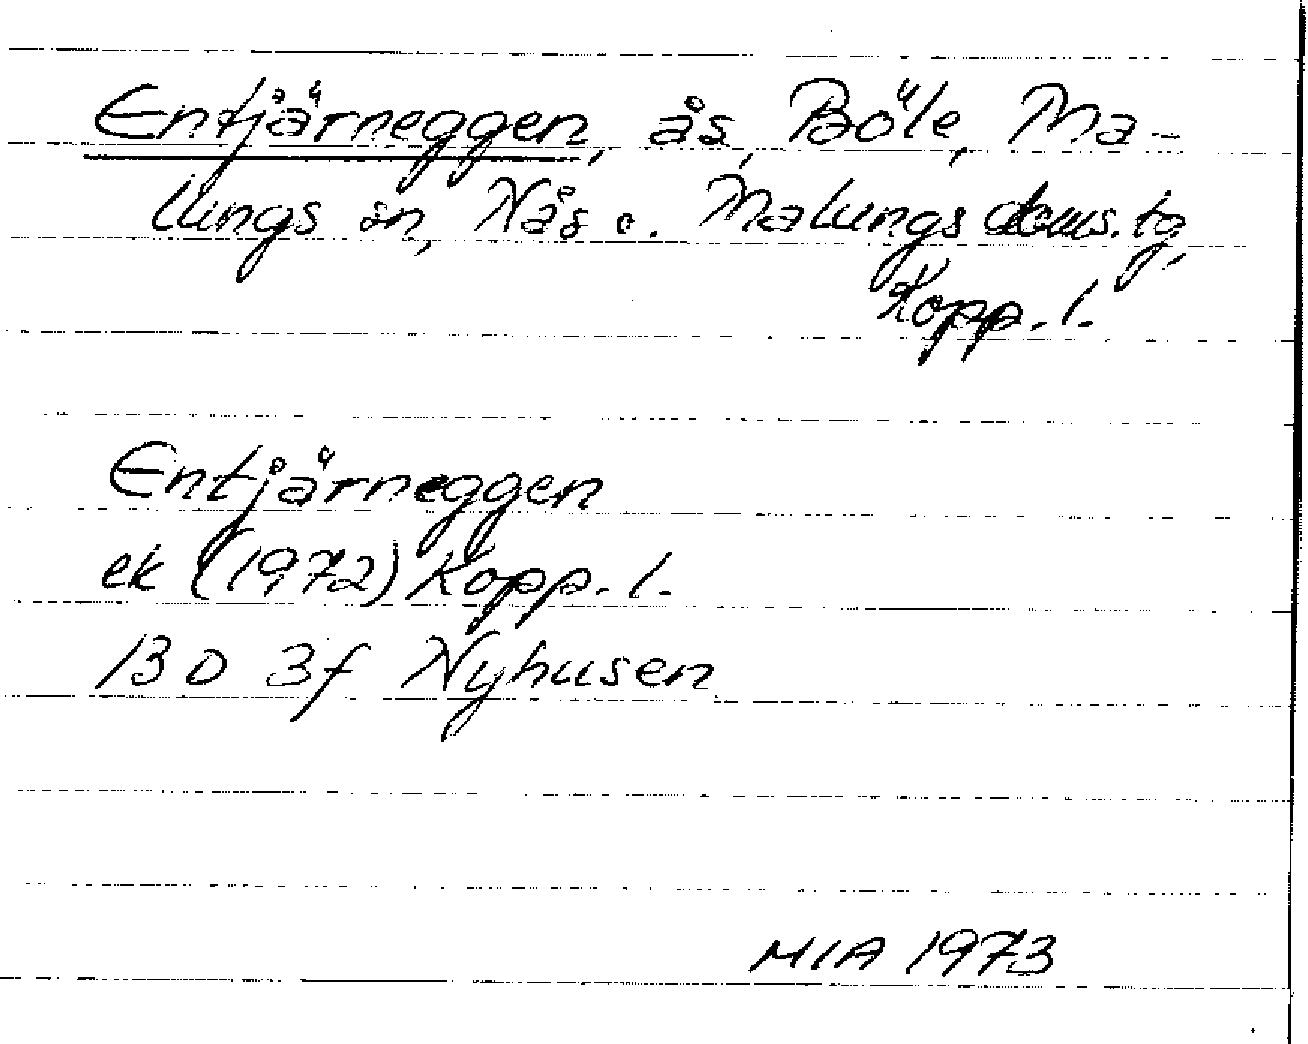 Entjärneggen, ås, Böle, Ma-
lungs sn, Nås o. Malungs doms. tg,
Kopp. l.
Entjärneggen
ek (1972) Kopp. l.
13 D 3f Nyhusen
MIA 1973